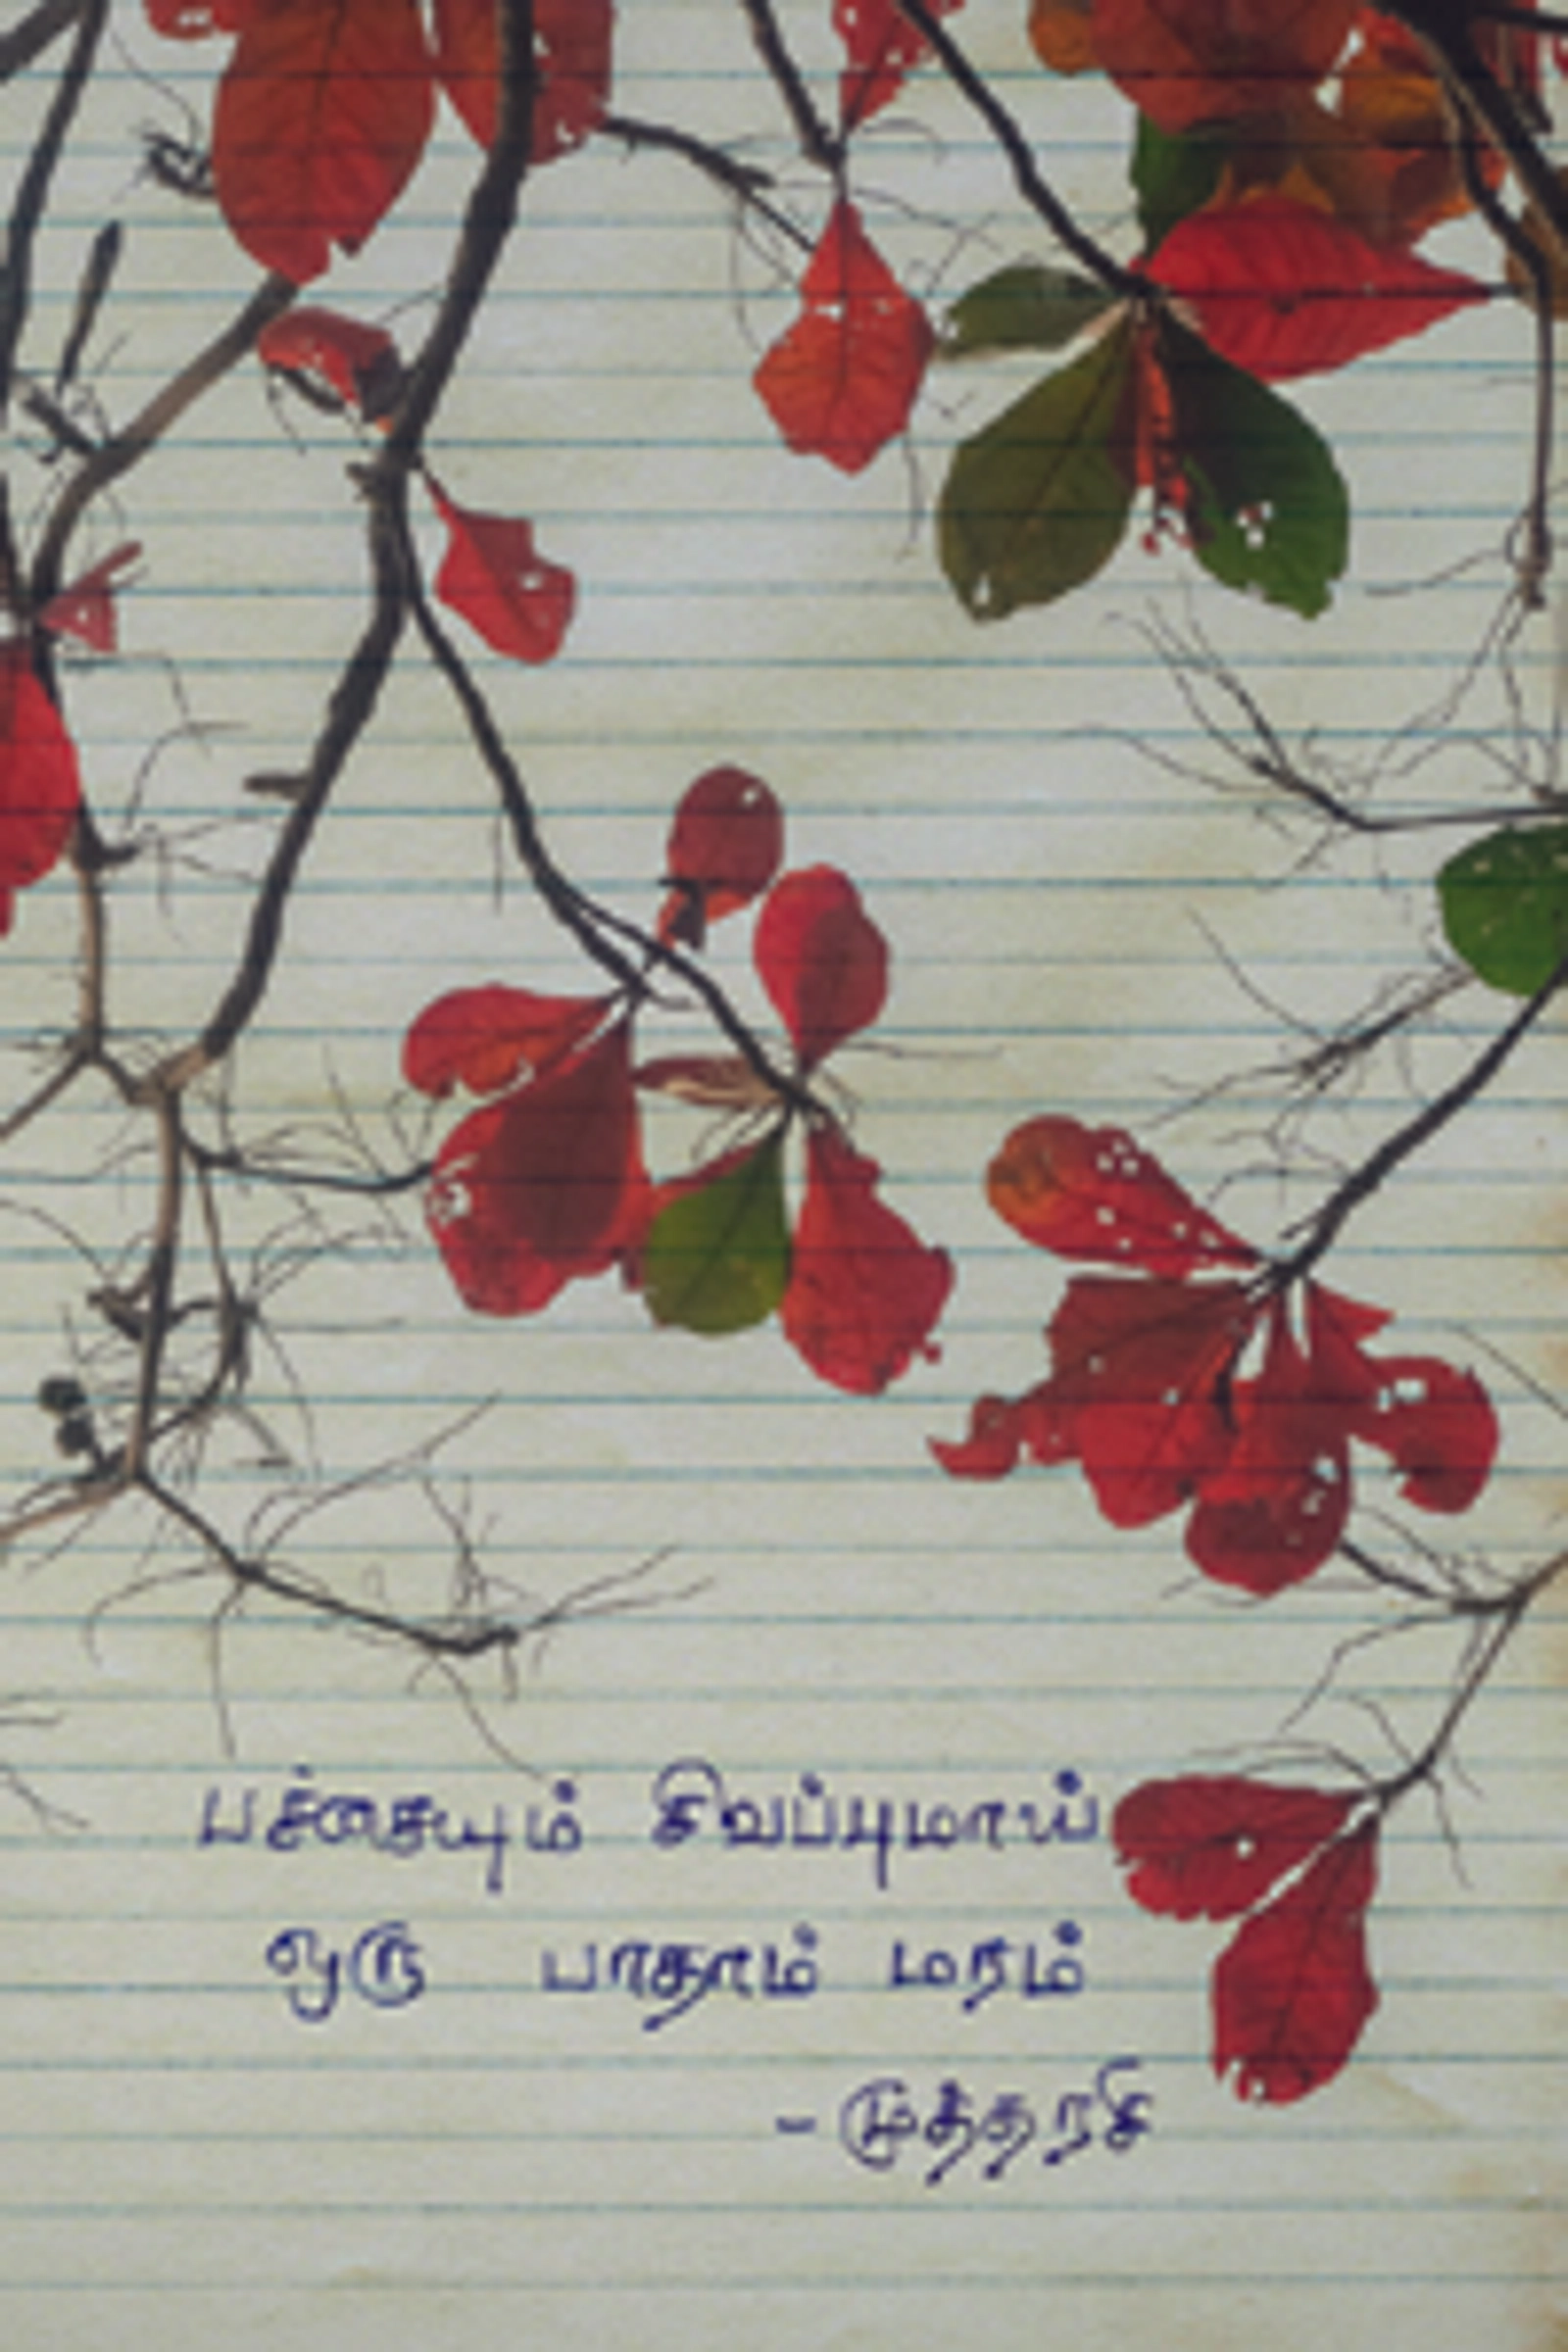 பச்சையும் சிவப்புமாய்
ஒரு பாதாம் மரம்
- முத்தரசி